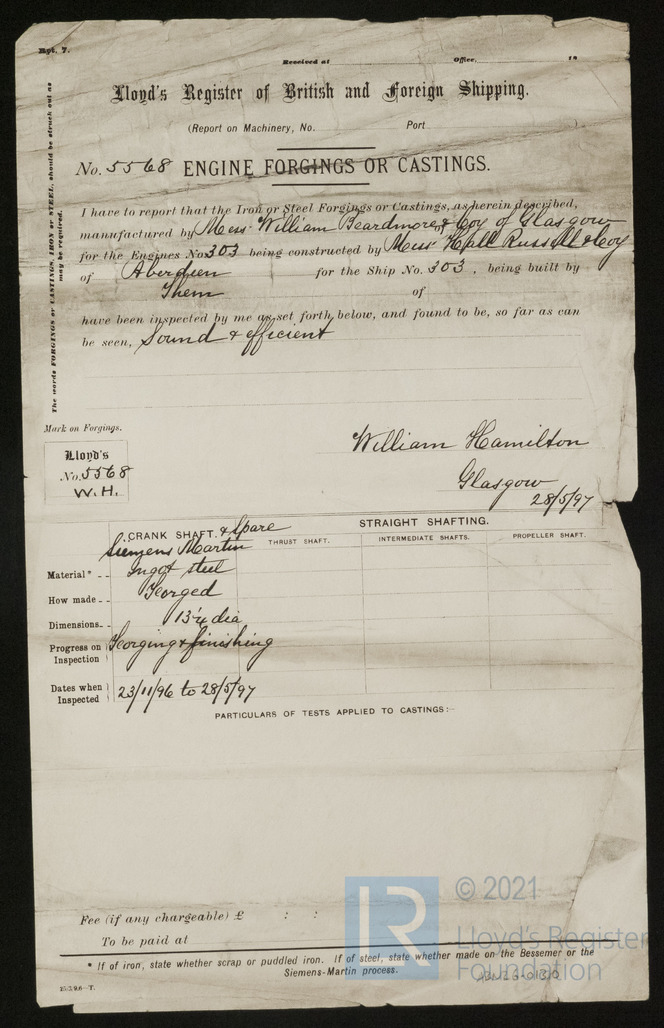 Rpt. 7.
Received at Office, 18
Lloyd's Register of British and Foreign Shipping.
(Report on Machinery, No. Port )
No. 5568 ENGINE FORGINGS OR CASTINGS.
The words FORGINGS or CASTINGS, IRON or STEEL, should be struck out as
may be required.
I have to report that the Iron or Steel Forgings or Castings, as herein described,
manufactured by Mess William Beardmore & Coy of Glasgow
for the Engines No. 303 being constructed by Mess Hall Russell & Coy
of Aberdeen for the Ship No. 303, being built by
Them of
have been inspected by me as set forth below, and found to be, so far as can
be seen, Sound & efficient
Mark on Forgings.
Lloyd's
No. 5568
W.H.
William Hamilton
Glasgow
28/5/97
CRANK SHAFT. & Spare
STRAIGHT SHAFTING.
THRUST SHAFT. INTERMEDIATE SHAFTS. PROPELLER SHAFT.
Siemens Martin
Material* Ingot steel
How made Forged
Dimensions 13¼ dia
Progress on Inspection Forging & finishing
Dates when Inspected 23/11/96 to 28/5/97
PARTICULARS OF TESTS APPLIED TO CASTINGS:-
Fee (if any chargeable) £ : :
To be paid at
* If of iron, state whether scrap or puddled iron. If of steel, state whether made on the Bessemer or the
Siemens-Martin process.
© 2021
LR
Lloyd's Register
Foundation